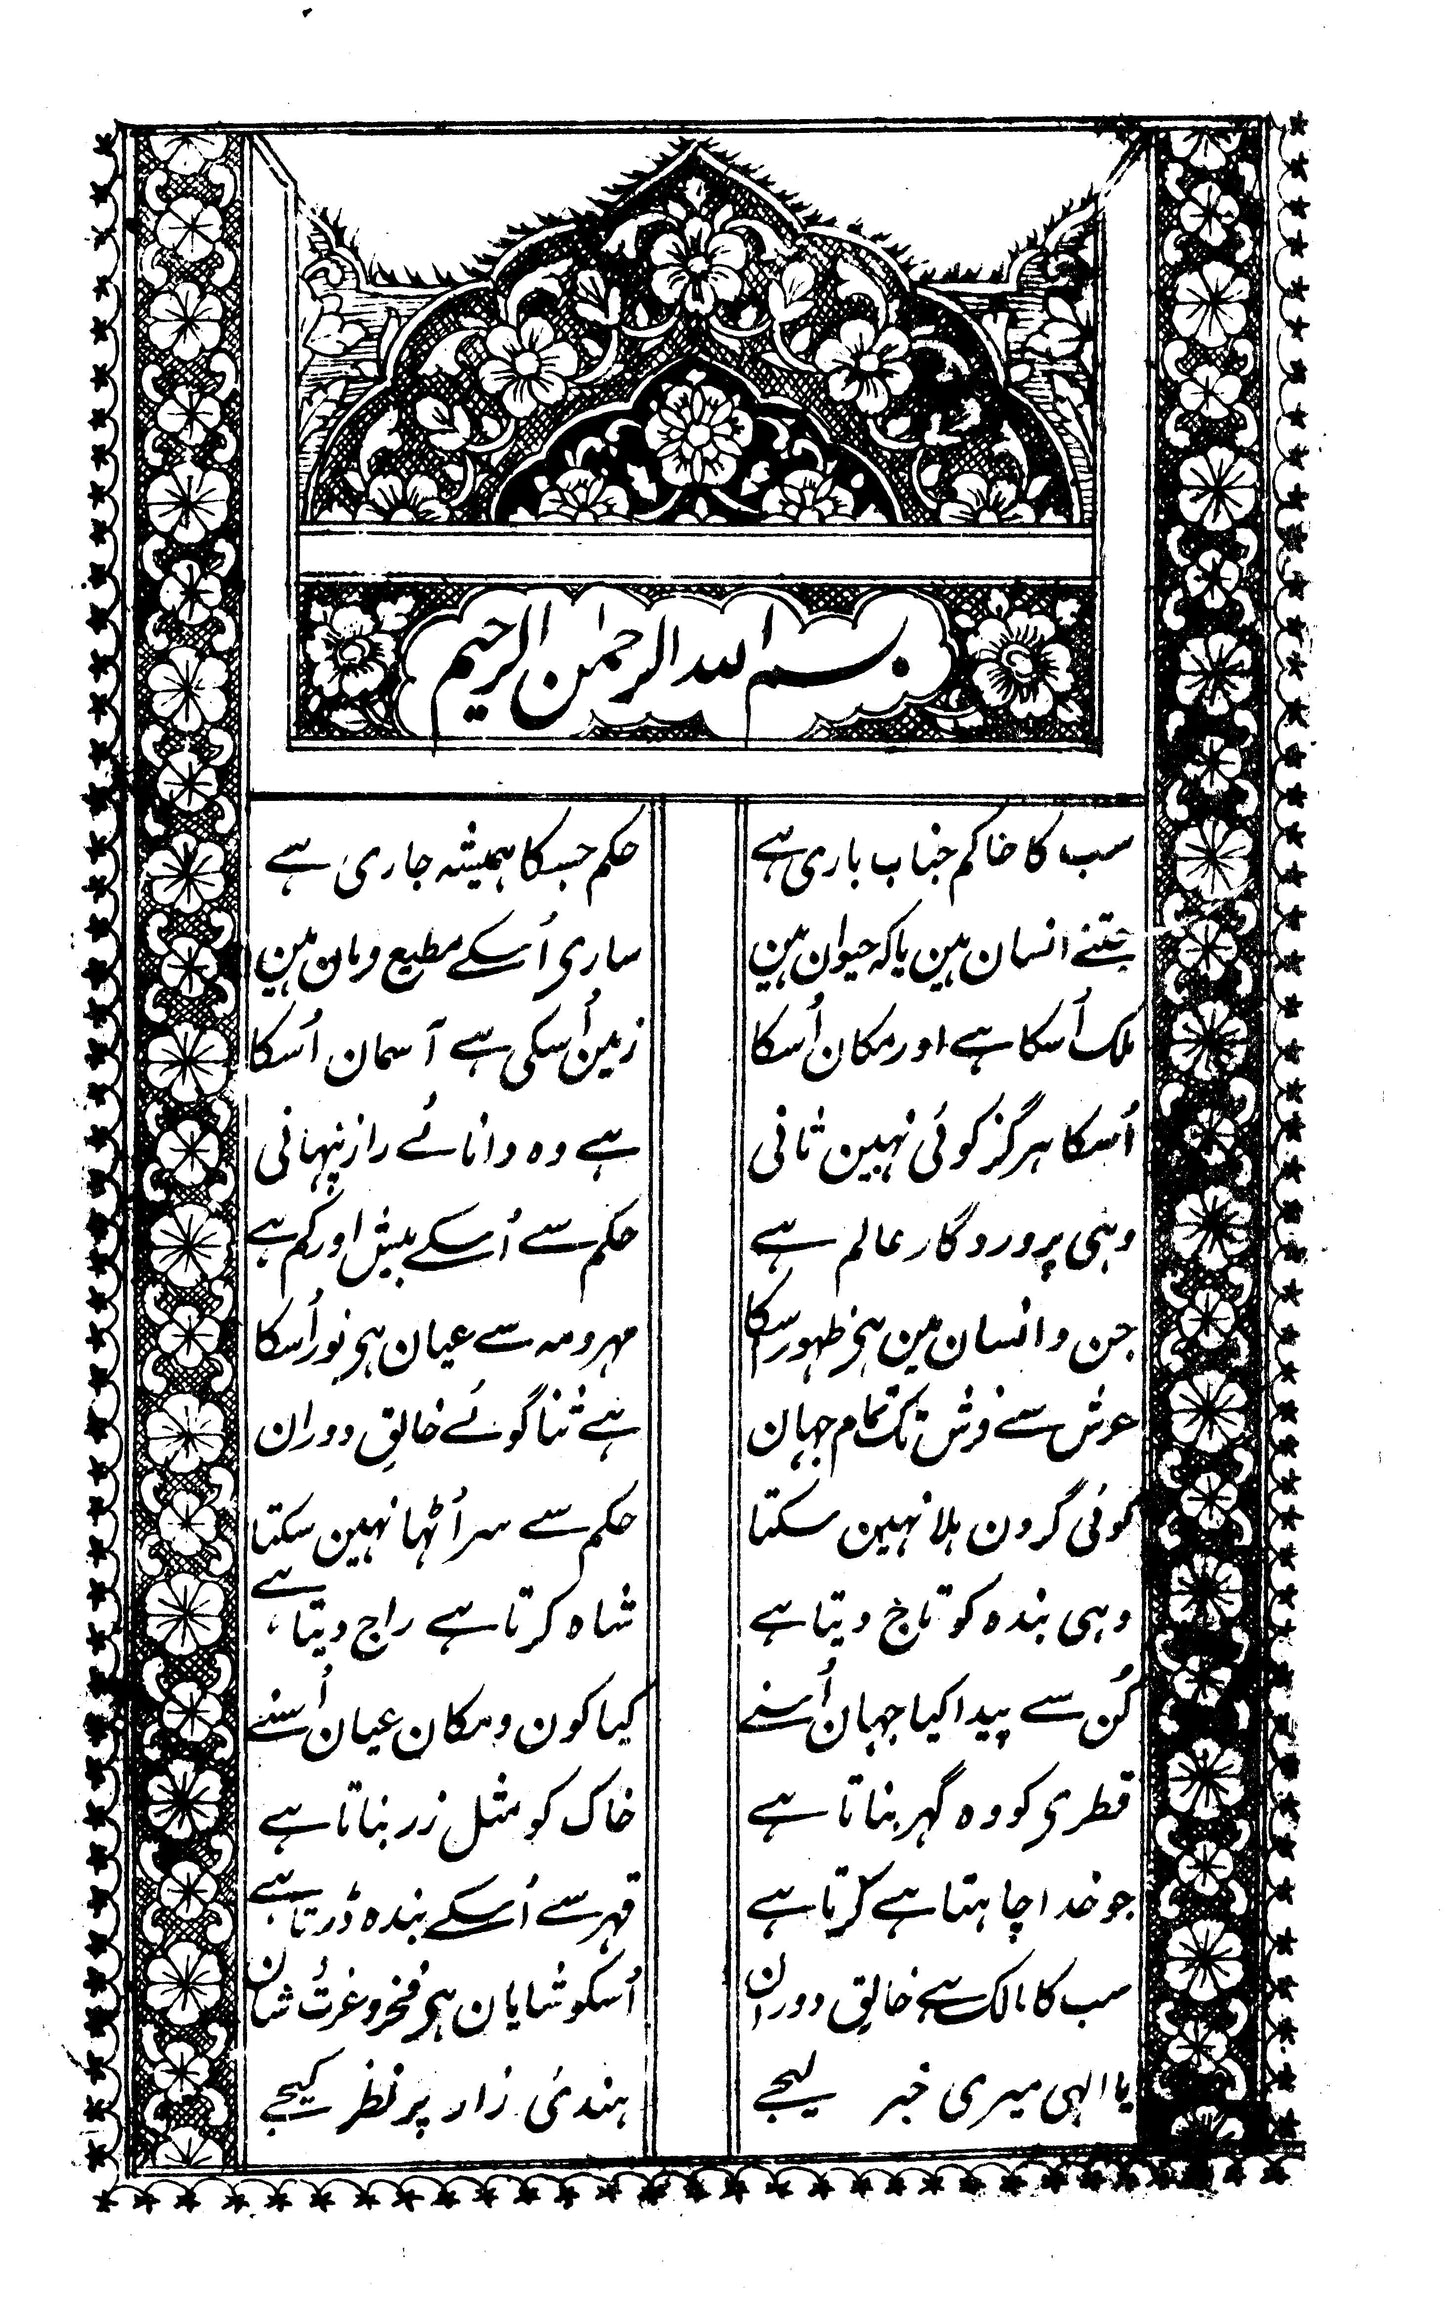 بسم الله الرحمٰن الرحیم
سب کا حاکم جناب باری ہے حکم جسکا ہمیشہ جاری ہے
جتنے انسان ہین یا کہ حیوان ہین ساری اُسکے مطیع فرمان ہین
ملک اُسکا ہے اور مکان اُسکا زمین اُسکی ہے آسمان اُسکا
اُسکا ہرگز کوئی نہین ثانی ہے وہ دانائے راز پنہانی
وہی پروردگار عالم ہے حکم سے اُسکے بیش اور کم ہے
جن و انسان مین ہی ظہور اسکا مہر و مہ سے عیان ہی نور اُسکا
عرش سے فرش تک تمام جہان ہے ثنا گوئے خالقِ دوران
کوئی گردن ہلا نہین سکتا حکم سے سر اُٹہا نہین سکتا
وہی بندہ کو تاج دیتا ہے شاہ کرتا ہے راج دیتا ہے
کُن سے پیدا کیا جہان اُسنے کیا کون و مکان عیان اُسنے
قطری کو وہ گہر بناتا ہے خاک کو مثل زر بناتا ہے
جو خدا چاہتا ہے کرتا ہے قہر سے اُسکے بندہ ڈرتا ہے
سب کا مالک ہے خالق دوران اُسکو شایان ہی فخر و عزت شان
یا الہی میری خبر لیجے ہندئ زار پر نظر کیجے